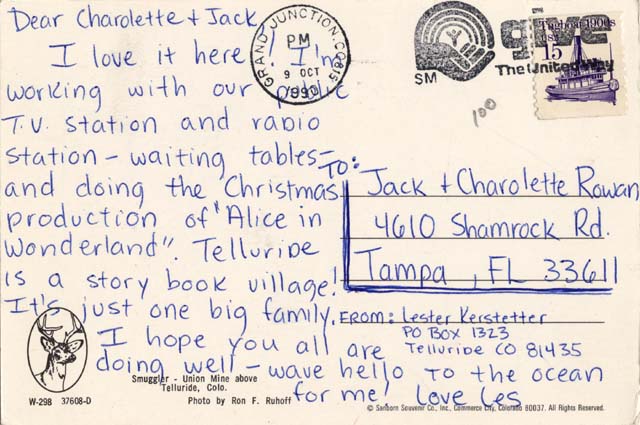 Dear Charolette + Jack
I love it here! I'm
working with our public
T.V. station and radio
station - waiting tables -
and doing the Christmas
production of "Alice in
Wonderland". Telluride
is a story book village!
It's just one big family.
I hope you all are
doing well - wave hello to the ocean
for me! Love Les
GRAND JUNCTION, CO 815
PM
9 OCT
1990
SM
give
The United Way
Tugboat 1900s
USA
15
100
TO:
Jack + Charolette Rowan
4610 Shamrock Rd.
Tampa, FL 33611
FROM: Lester Kerstetter
PO Box 1323
Telluride CO 81435
Smuggler - Union Mine above
Telluride, Colo.
W-298 37608-D
Photo by Ron F. Ruhoff
© Sanborn Souvenir Co., Inc., Commerce City, Colorado 80037. All Rights Reserved.